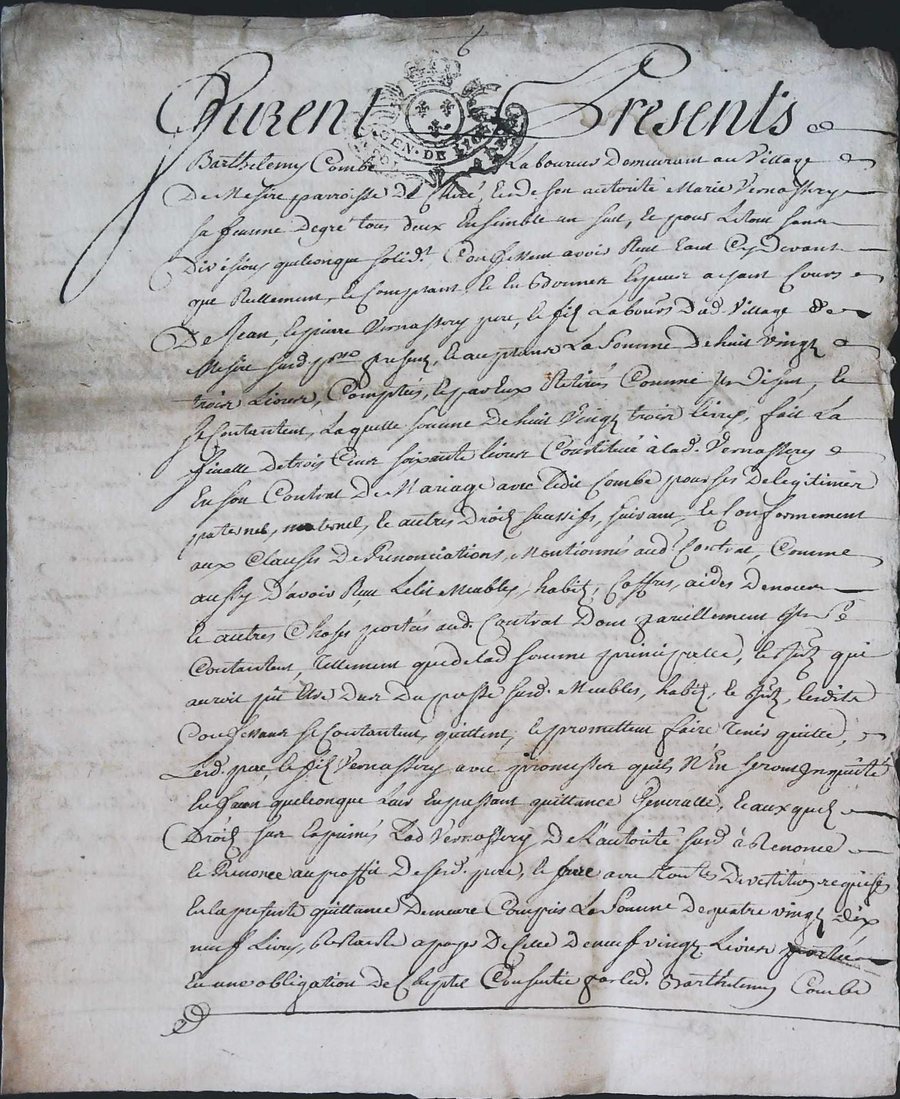 6
Furent Presents
GEN. DE
Barthelemy Combe Laboureur Demeurant au Village
De Mesire parroisse de & de son autorité Marie Vernassery
sa femme Degré tous deux Ensemble un seul, et pour Le tout sans
Divisions quelconque solid.t Confessent avoir Reçu tant Cy Devant
que Reellement, et Comptant, et en Bonnes Especes ayant Cours
De Jean, et pierre Vernassery pere, et fils Laboureurs Dud. Village de
Mesire surd. presens, et acceptans La Somme De huit vingt
trois Livres, Comptés, et par Eux Retirés Comme ont dit, et
se Contantent, Laquelle somme De huit Vingt trois Livres, fait La
finalle De trois Cent soixante livres Constitué à lad. Vernassery
En son Contrat De Mariage avec Ledit Combe pour ses De legitimes
paternel, maternel, et autres Droits successifs, suivant, et Conformement
aux Clauses De Renonciations, Mentionnés aud. Contrat, Comme
aussy D'avoir Reçu Les Meubles, habits, Coffres,
et autres Choses portés aud. Contrat Dont pareillement
Contantent, tellement que de lad. somme principalle, et qui
auroit pu Etre Deux Du passé surd. Meubles, habits, et lesdits
Confessans se Contantent, quittent, et promettent faire Tenir quitte,
Lesd. pere, et fils Vernassery avec promesse quils N'En seront Inquietés
En façon quelconque Leur En passant quittance Generalle, Et auxquels
Droits sur Exprimés Lad. Vernassery De L'autorité surd. à Renoncé
et Renonce au proffit De sesd. pere, et frere avec toutes Devestitures requises
En la presente quittance Demeure Compris La Somme De quatre vingt Dix
neuf Livres, Restante a payer De Celle De neuf vingt Livres portée
En une obligation de Cheptel Consentie par led. Barthelemy Combe